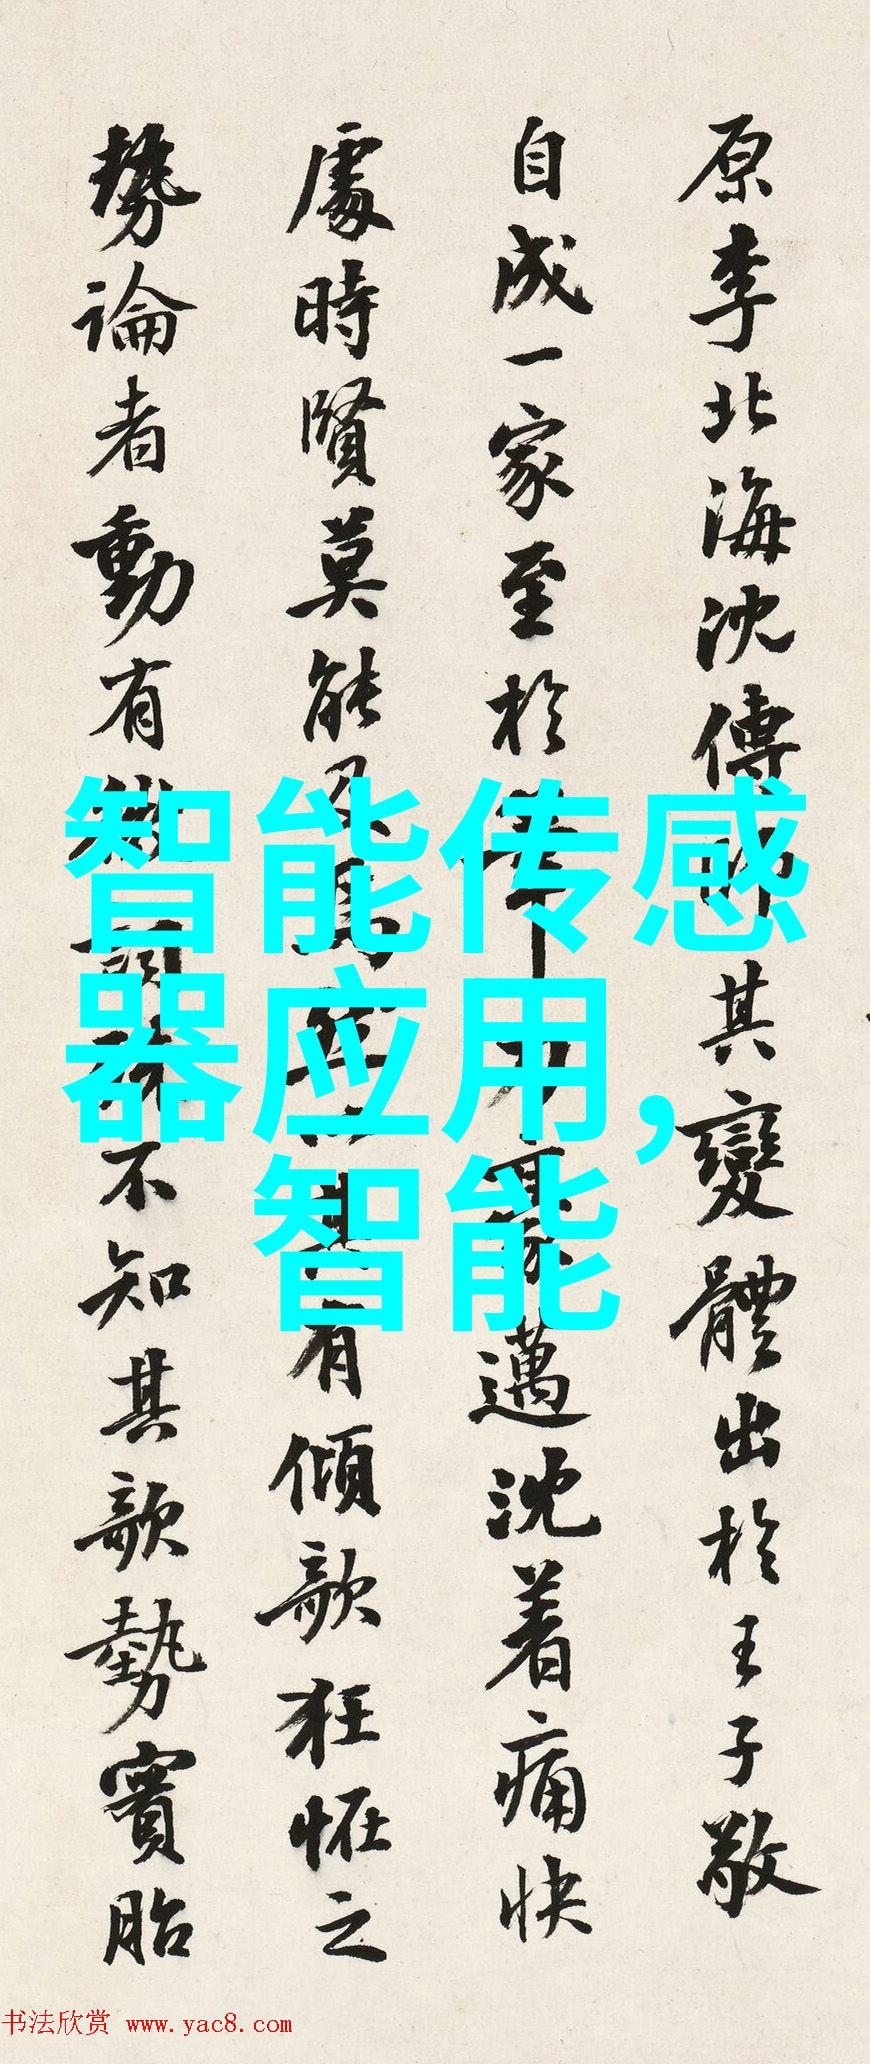 原李北海沈傳師其變體出於王子敬
自成一家至於邁沈着痛快
處時賢莫能及有傾欹狂怪之
勢論者動有不知其欹勢實胎
智能传感
器应用，
智能
书法欣赏 www.yac8.com